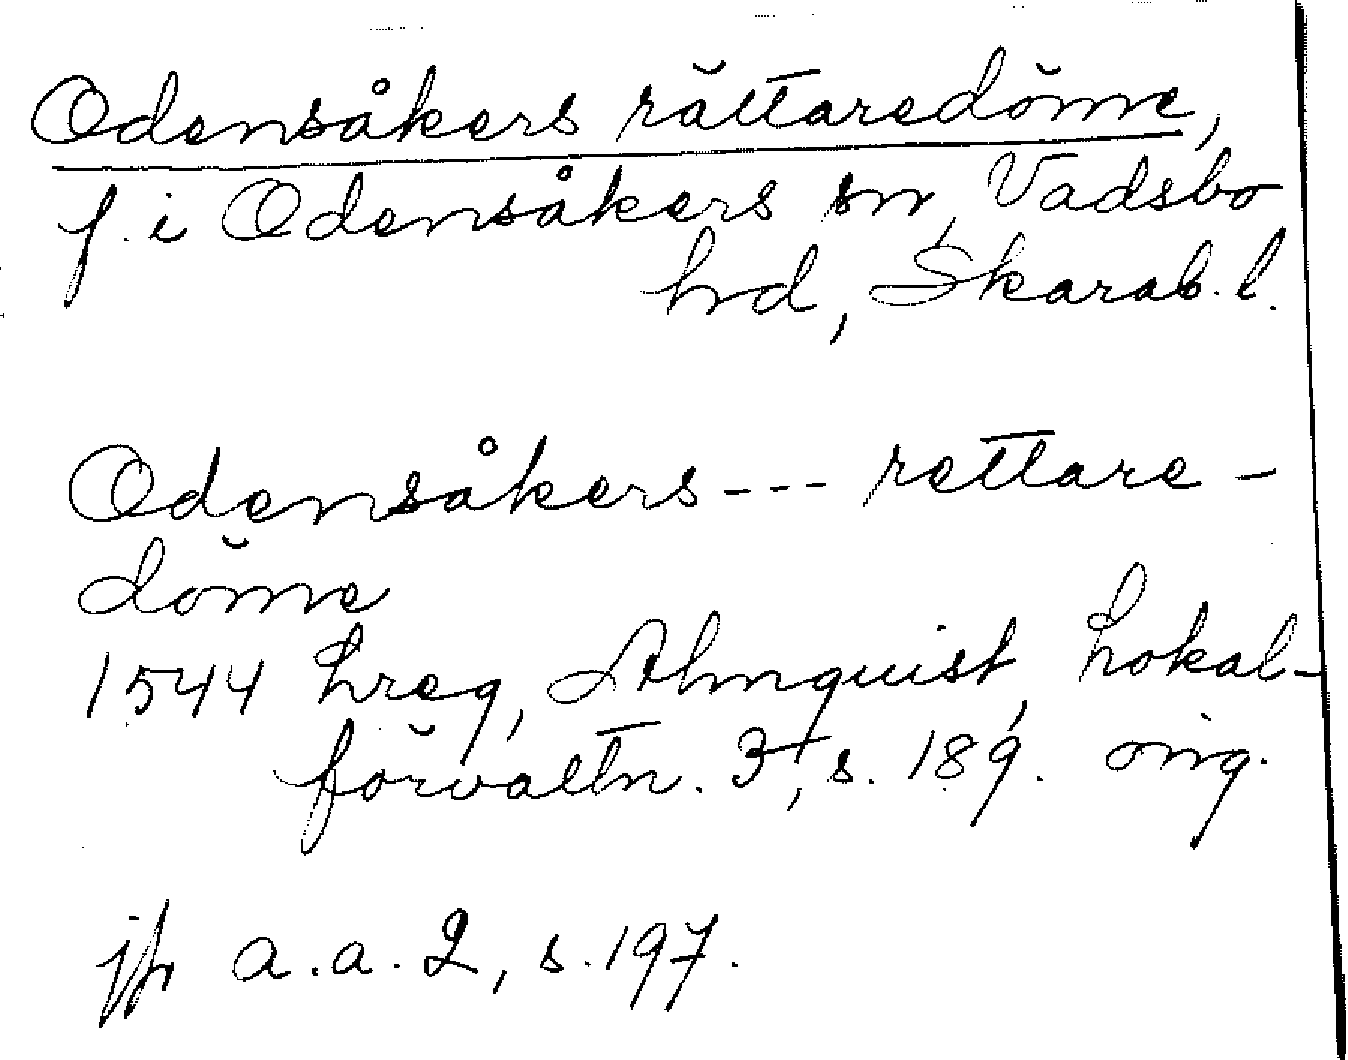 Odensåkers rättaredöme,
f. i Odensåkers sn, Vadsbo
hd, Skarab. l.
Odensåkers --- rettare-
döme
1544 Lreg, Almquist, Lokal-
förvaltn. 3, s. 189. orig.
jfr a.a. 2, s. 197.